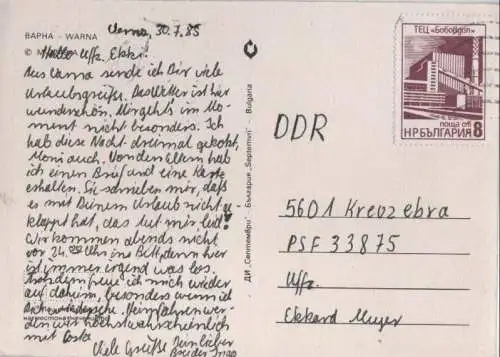 Varna, 30.7.85
ВАРНА - WARNA
Hallo Uffz. Ekki!
Aus Varna sende ich Dir viele
Urlaubsgrüße. Das Wetter ist hier
wunderschön. Mir geht's im Mo-
ment nicht besonders. Ich
hab diese Nacht dreimal gekotzt,
Moni auch. Von den Eltern hab
ich einen Brief und eine Karte
erhalten. Sie schrieben mir, daß
es mit Deinem Urlaub nicht ge-
klappt hat, das tut mir leid!
Wir kommen abends nicht
vor 24.00 Uhr ins Bett, denn hier
ist immer irgend was los.
Trotzdem freue ich mich wieder
auf daheim, besonders wenn ich
Dich wiedersehe. Heimfahren wer-
den wir höchstwahrscheinlich
mit
Viele Grüße Dein lieber
Bruder
ДИ „Септември" · България „Septemvri" · Bulgaria
ТЕЦ „Бобовдол"
поща ст. 8
НРБЪЛГАРИЯ
DDR
5601 Kreuzebra
PSF 33875
Uffz.
Ekkard Meyer